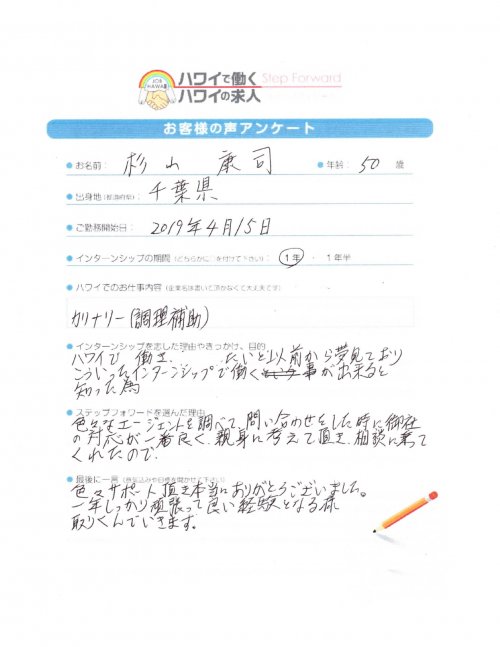 JOB
HAWAII
ハワイで働く Step Forward
ハワイの求人
お客様の声アンケート
お名前: 杉山 康司 年齢: 50 歳
出身地(都道府県): 千葉県
ご勤務開始日: 2019年4月15日
インターンシップの期間(どちらかに○を付けて下さい): 1年 ・ 1年半
ハワイでのお仕事内容(企業名は書いて頂かなくて大丈夫です)
カリナリー(調理補助)
インターンシップを志した理由やきっかけ、目的
ハワイで 働き たいと以前から夢見ており
こういったインターンシップで働く事が出来ると
知った為
ステップフォワードを選んだ理由
色々なエージェントを調べて、問い合わせをした時に御社
の対応が一番良く、親身に考えて頂き、相談に乗って
くれたので
最後に一言
色々サポート頂き本当にありがとうございました。
一年しっかり頑張って良い経験となる様
取りくんでいきます。